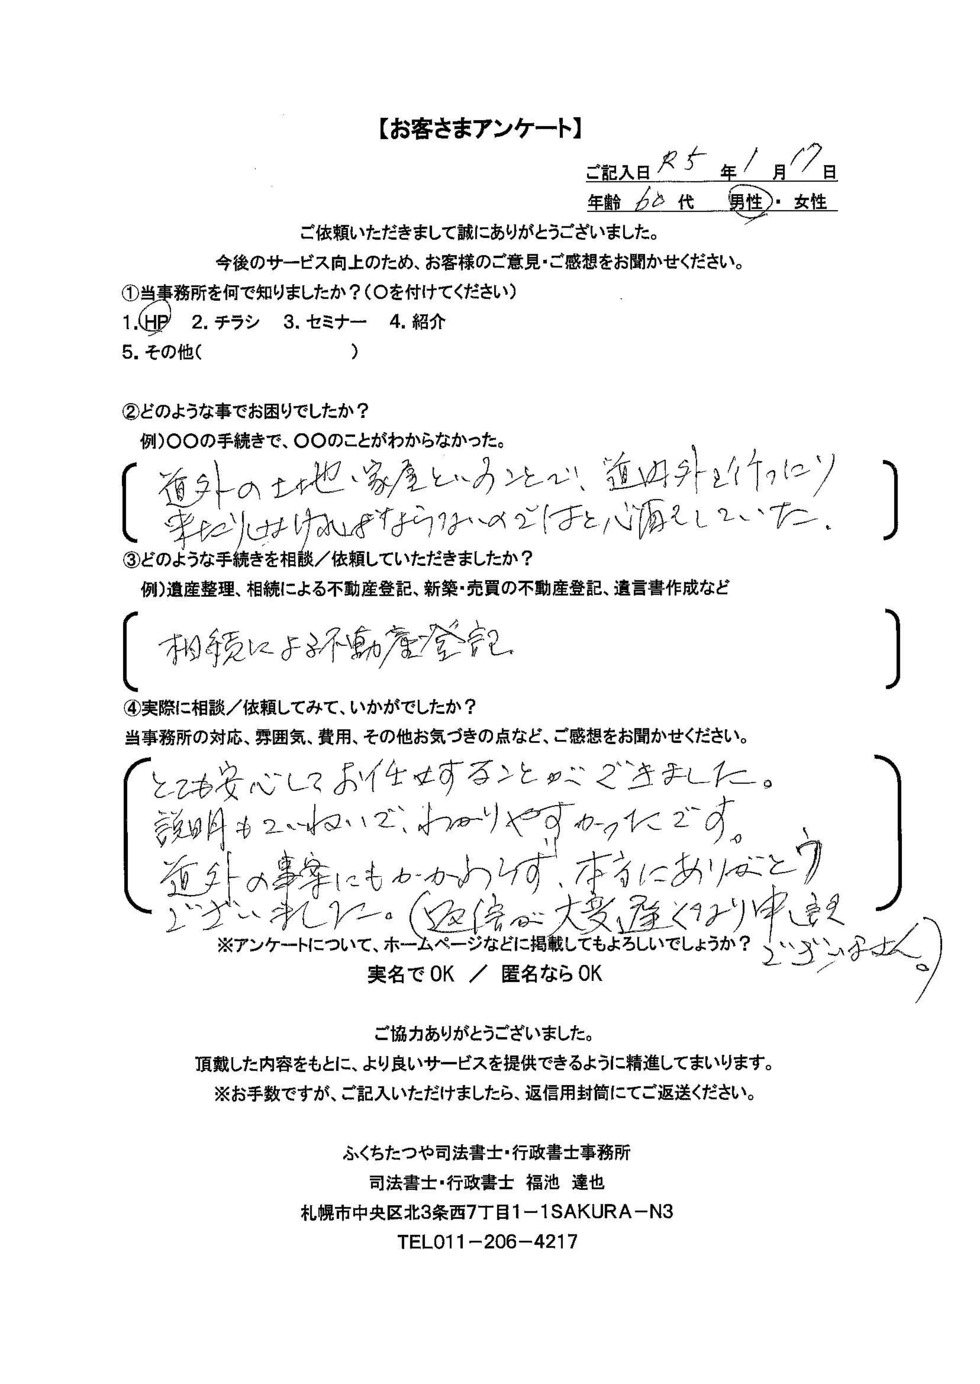 【お客さまアンケート】
ご記入日 R5 年 1 月 17 日
年齢 60 代 男性・女性
ご依頼いただきまして誠にありがとうございました。
今後のサービス向上のため、お客様のご意見・ご感想をお聞かせください。
①当事務所を何で知りましたか？(○を付けてください)
1. HP 2. チラシ 3. セミナー 4. 紹介
5. その他( )
②どのような事でお困りでしたか？
例)○○の手続きで、○○のことがわからなかった。
道外の土地、家屋ということで、道内外を行ったり
来たりしなければならないのではと心配していた。
③どのような手続きを相談／依頼していただきましたか？
例)遺産整理、相続による不動産登記、新築・売買の不動産登記、遺言書作成など
相続による不動産登記。
④実際に相談／依頼してみて、いかがでしたか？
当事務所の対応、雰囲気、費用、その他お気づきの点など、ご感想をお聞かせください。
とても安心してお任せすることができました。
説明もていねいで、わかりやすかったです。
道外の事案にもかかわらず、本当にありがとう
ございました。(返信が大変遅くなり申し訳
ございません。)
※アンケートについて、ホームページなどに掲載してもよろしいでしょうか？
実名でOK ／ 匿名ならOK
ご協力ありがとうございました。
頂戴した内容をもとに、より良いサービスを提供できるように精進してまいります。
※お手数ですが、ご記入いただけましたら、返信用封筒にてご返送ください。
ふくちたつや司法書士・行政書士事務所
司法書士・行政書士 福池 達也
札幌市中央区北3条西7丁目1－1SAKURA－N3
TEL011－206－4217